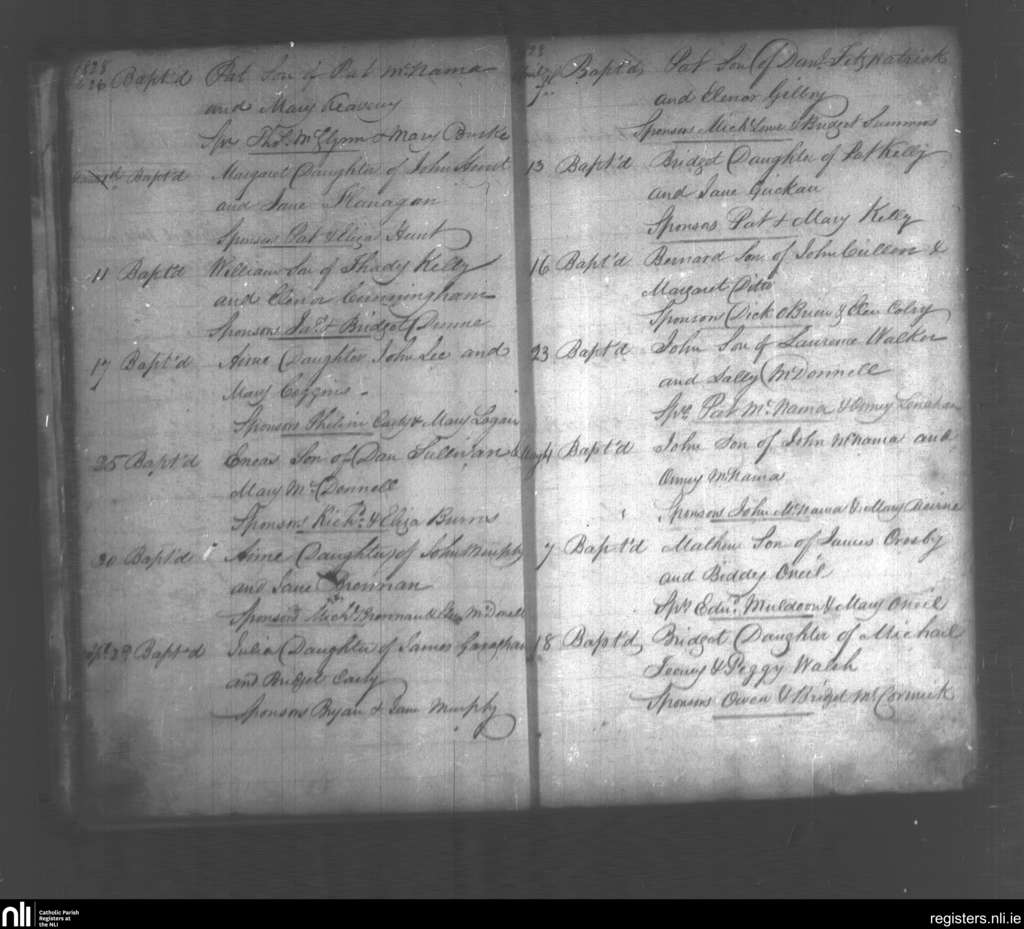 1828
26 Bapt'd Pat Son of Pat McNama
and Mary Keaveny
Spr Thos. McGlynn & Mary Burke
Bapt'd Margaret Daughter of John Hunt
and Jane Flanagan
Sponsors Pat & Eliza Hunt
11 Bapt'd William Son of Thady Kelly
and Elenor Cunningham
Sponsors Jas. & Bridget Dunne
17 Bapt'd Anne Daughter John Lee and
Mary Coggins
Sponsors Early & Mary Logan
25 Bapt'd Son of Dan Sullivan &
Mary McDonnell
Sponsors Richd. & Eliza Burns
30 Bapt'd Anne Daughter of John Murphy
and Jane Brennan
Sponsors Michl. Brennan & McDonell
29 Bapt'd Julia Daughter of James Garaghan
and Bridget Early
Sponsors Bryan & Jane Murphy
28
Bapt'd Pat Son of Danl. Fitzpatrick
and Elenor Gilby
Sponsors Michl. Lowe & Bridget Summons
13 Bapt'd Bridget Daughter of Pat Kelly
and Jane
Sponsors Pat & Mary Kelly
16 Bapt'd Bernard Son of John Cullen &
Margaret Ditto
Sponsors Dick OBrien & Elen
23 Bapt'd John Son of Laurence Walker
and Sally McDonnell
Sprs Pat McNama & Lenahan
May 4 Bapt'd John Son of John McNama and
McNama
Sponsors John McNama & Mary
7 Bapt'd Mathew Son of James Crosby
and Biddy Oneil
Sprs Edwd. Muldoon & Mary Oneil
18 Bapt'd Bridget Daughter of Michael
Feeney & Peggy Walsh
Sponsors Owen & Bridget McCormick
nli
Catholic Parish
Registers at
the NLI
registers.nli.ie